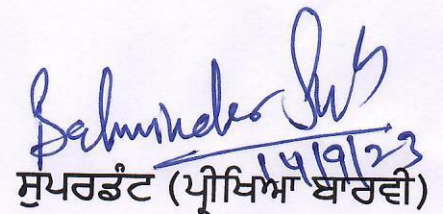 Balwinder Singh
14/9/23
ਸੁਪਰਡੰਟ (ਪ੍ਰੀਖਿਆ ਬਾਰਵੀ)